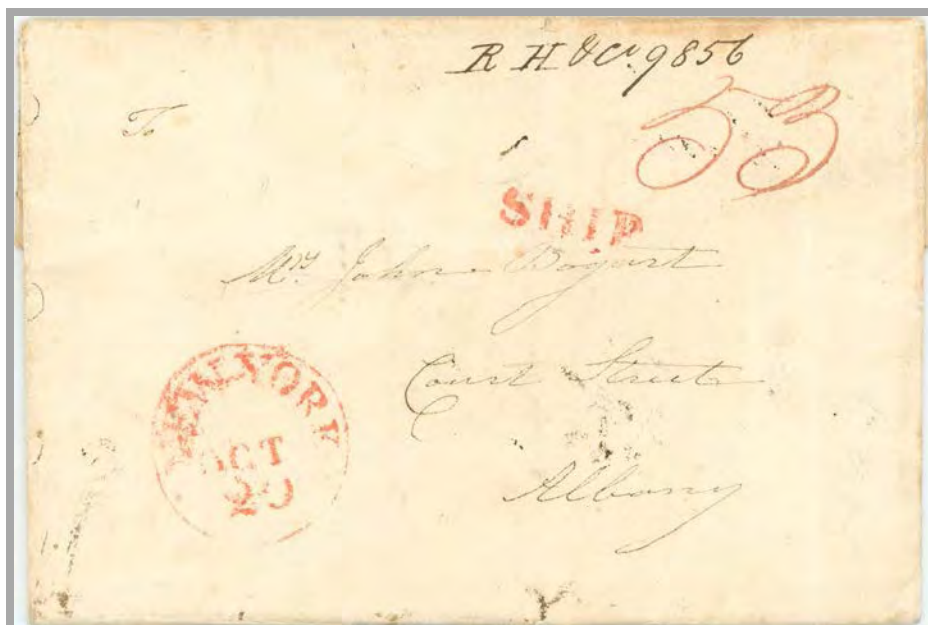 R H & Co. 9856
53
To
SHIP
Mrs. John Bogart
Court Street
Albany
NEW YORK
OCT